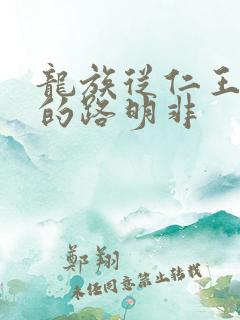 龍族從仁王
的路明非
鄭翔
未经同意禁止转载